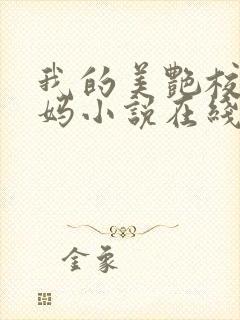 我的美艷校
妈小說在綫
金象